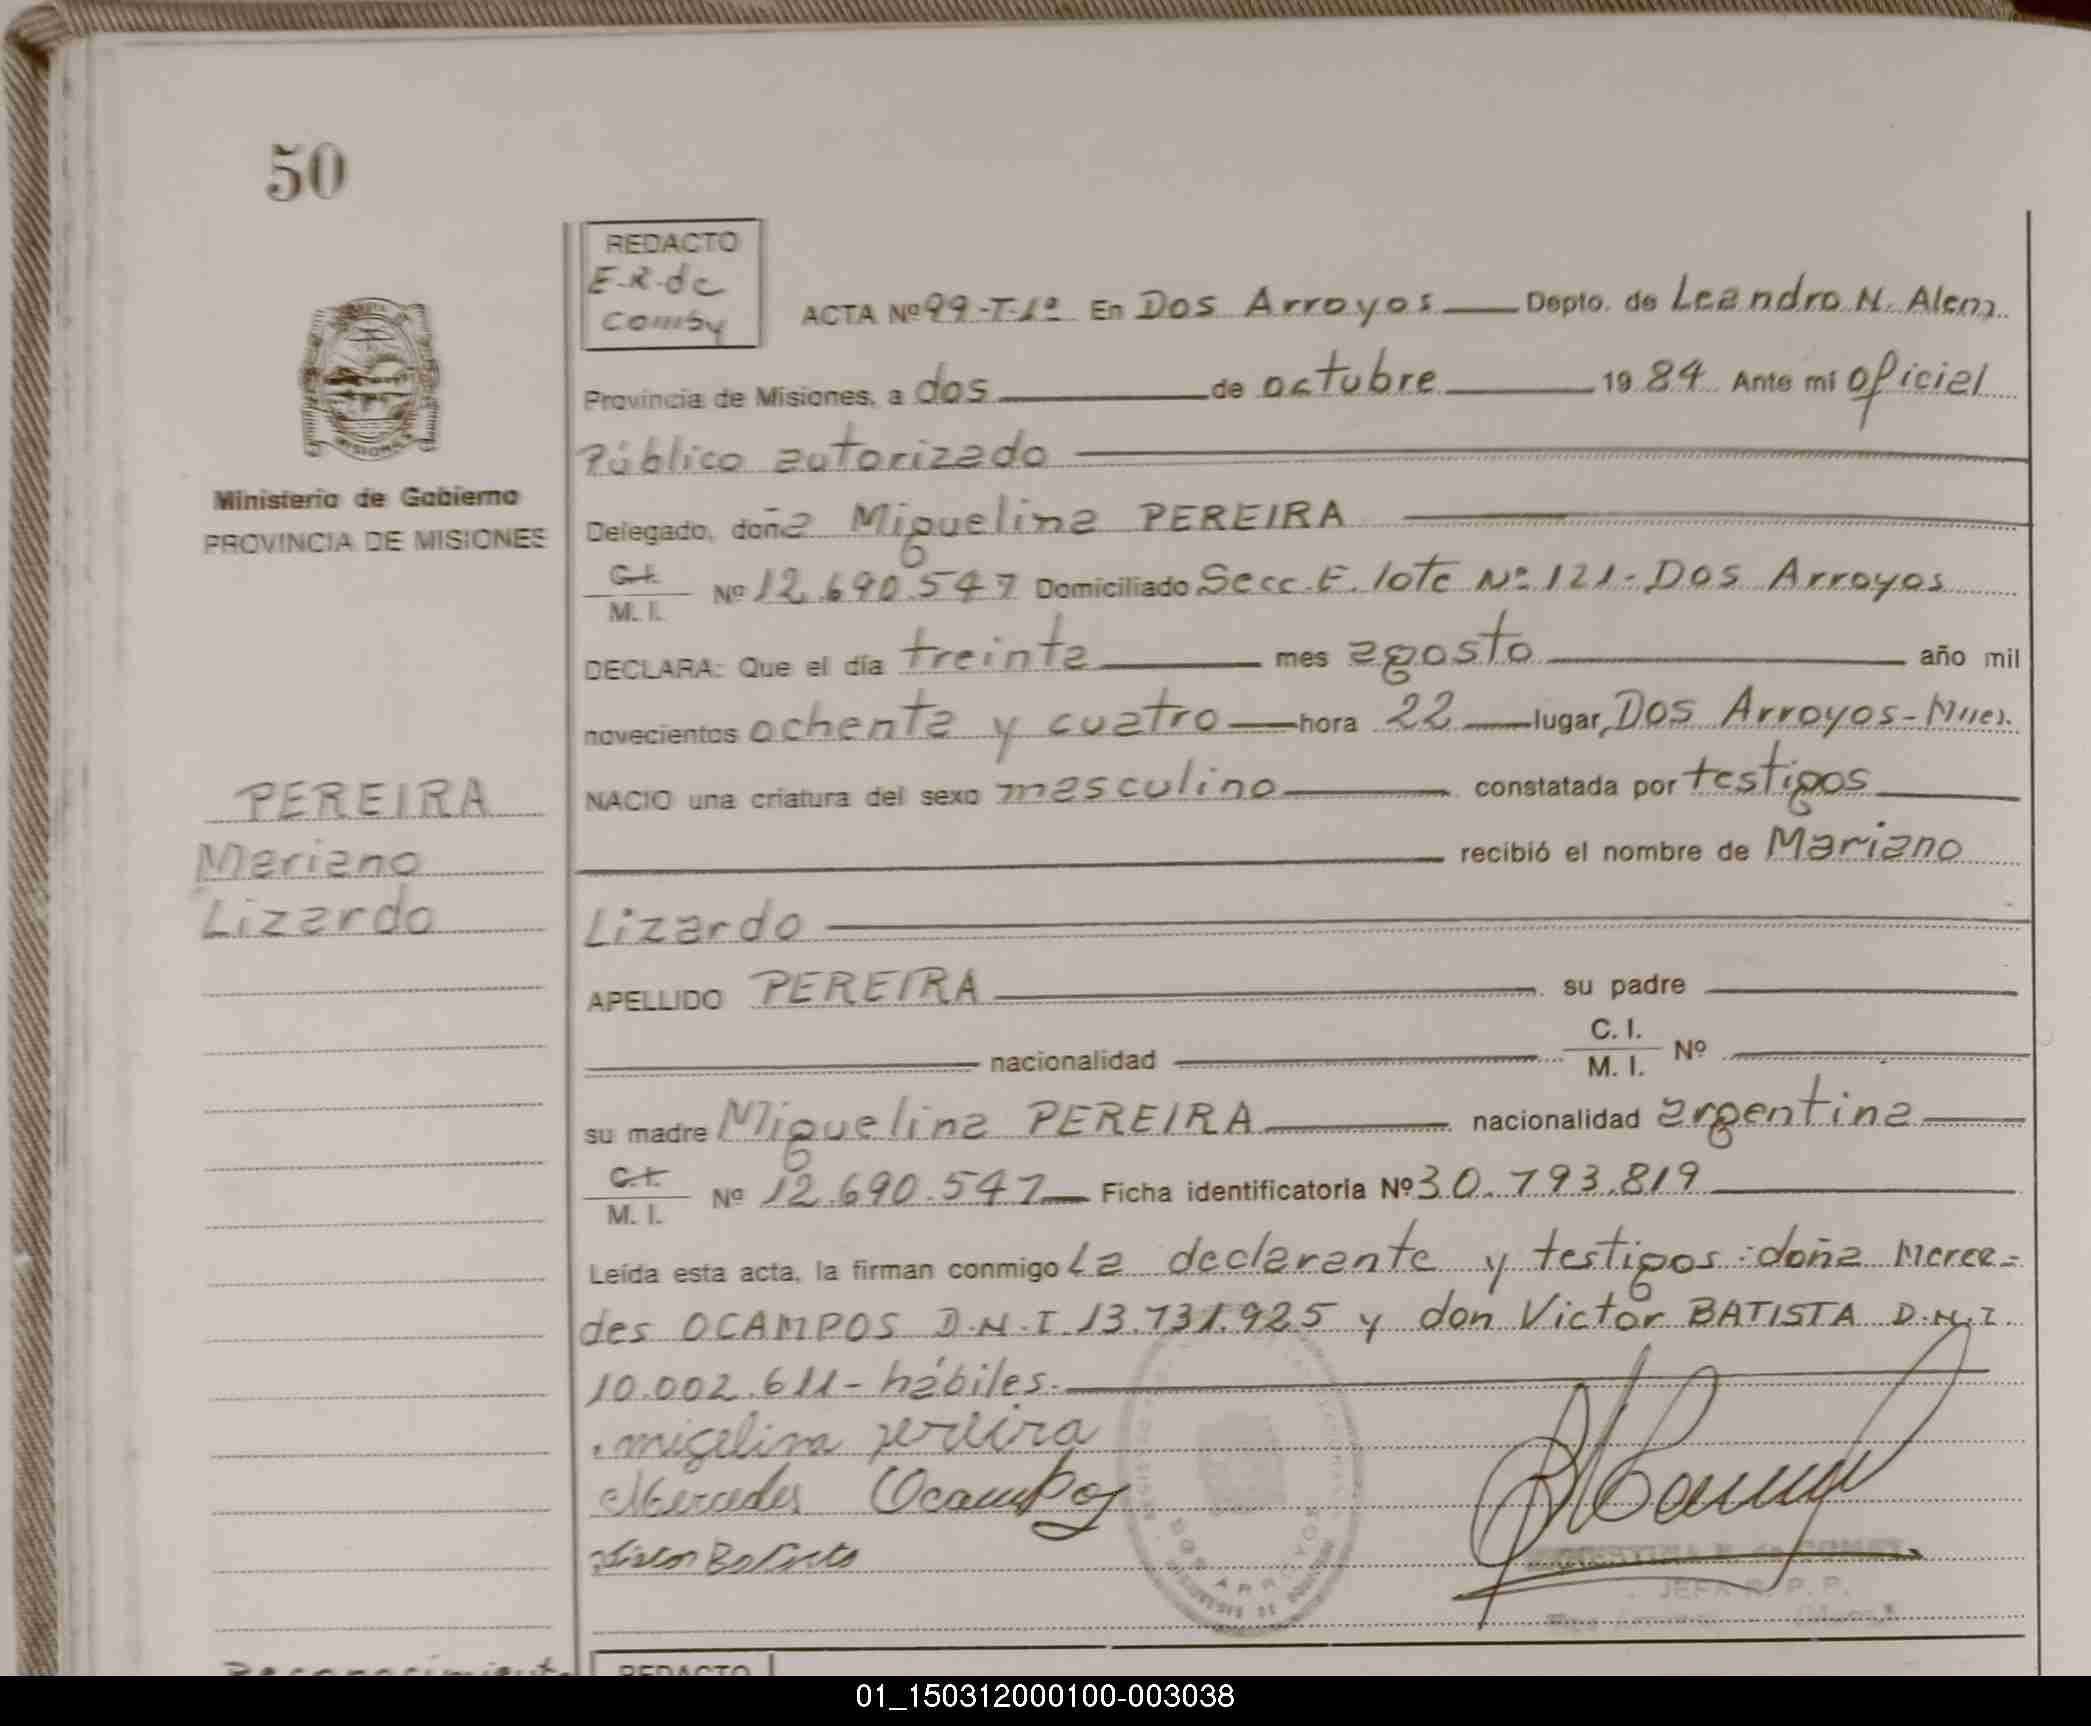 50
REDACTO
E.R. de
Comby
ACTA Nº 99-T-1º En Dos Arroyos Depto. de Leandro N. Alem
Provincia de Misiones, a dos de octubre 1984 Ante mí oficial
Público autorizado
Ministerio de Gobierno
PROVINCIA DE MISIONES
Delegado, doña Miguelina PEREIRA
C.I.
M. I. Nº 12.690.547 Domiciliado Secc. E. lote Nº 121- Dos Arroyos
DECLARA: Que el día treinta mes agosto año mil
novecientos ochenta y cuatro hora 22 lugar Dos Arroyos-Mnes.
NACIO una criatura del sexo masculino constatada por testigos
recibió el nombre de Mariano
Lizardo
PEREIRA
Mariano
Lizardo
APELLIDO PEREIRA su padre
nacionalidad C. I.
M. I. Nº
su madre Miguelina PEREIRA nacionalidad argentina
C.I.
M. I. Nº 12.690.547 Ficha identificatoria Nº 30.793.819
Leída esta acta, la firman conmigo la declarante y testigos: doña Merce=
des OCAMPOS D.N.I 13.731.925 y don Victor BATISTA D.N.I.
10.002.611- hábiles.
migelina pereira
Mercedes Ocampos
Victor Batista
DOS ARROYOS
JEFA R. P. P.
Reconocimiento
REDACTO
01_150312000100-003038